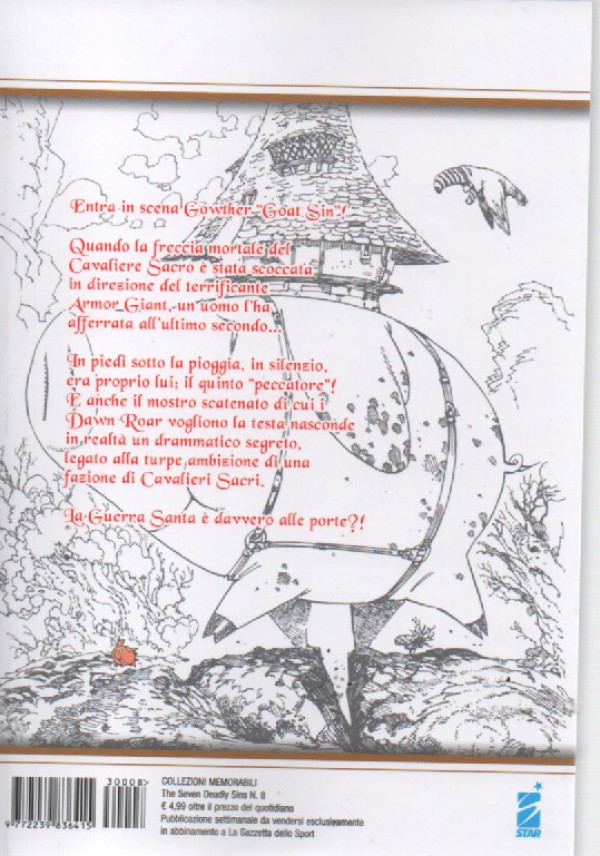 Entra in scena Gowther "Goat Sin"!
Quando la freccia mortale del
Cavaliere Sacro è stata scoccata
in direzione del terrificante
Armor Giant, un'uomo l'ha
afferrata all'ultimo secondo...
In piedi sotto la pioggia, in silenzio,
era proprio lui: il quinto "peccatore"!
E anche il mostro scatenato di cui i
Dawn Roar vogliono la testa nasconde
in realtà un drammatico segreto,
legato alla turpe ambizione di una
fazione di Cavalieri Sacri.
La Guerra Santa è davvero alle porte?!
30008>
9 772239 836415
COLLEZIONI MEMORABILI
The Seven Deadly Sins N. 8
€ 4,99 oltre il prezzo del quotidiano
Pubblicazione settimanale da vendersi esclusivamente
in abbinamento a La Gazzetta dello Sport
STAR